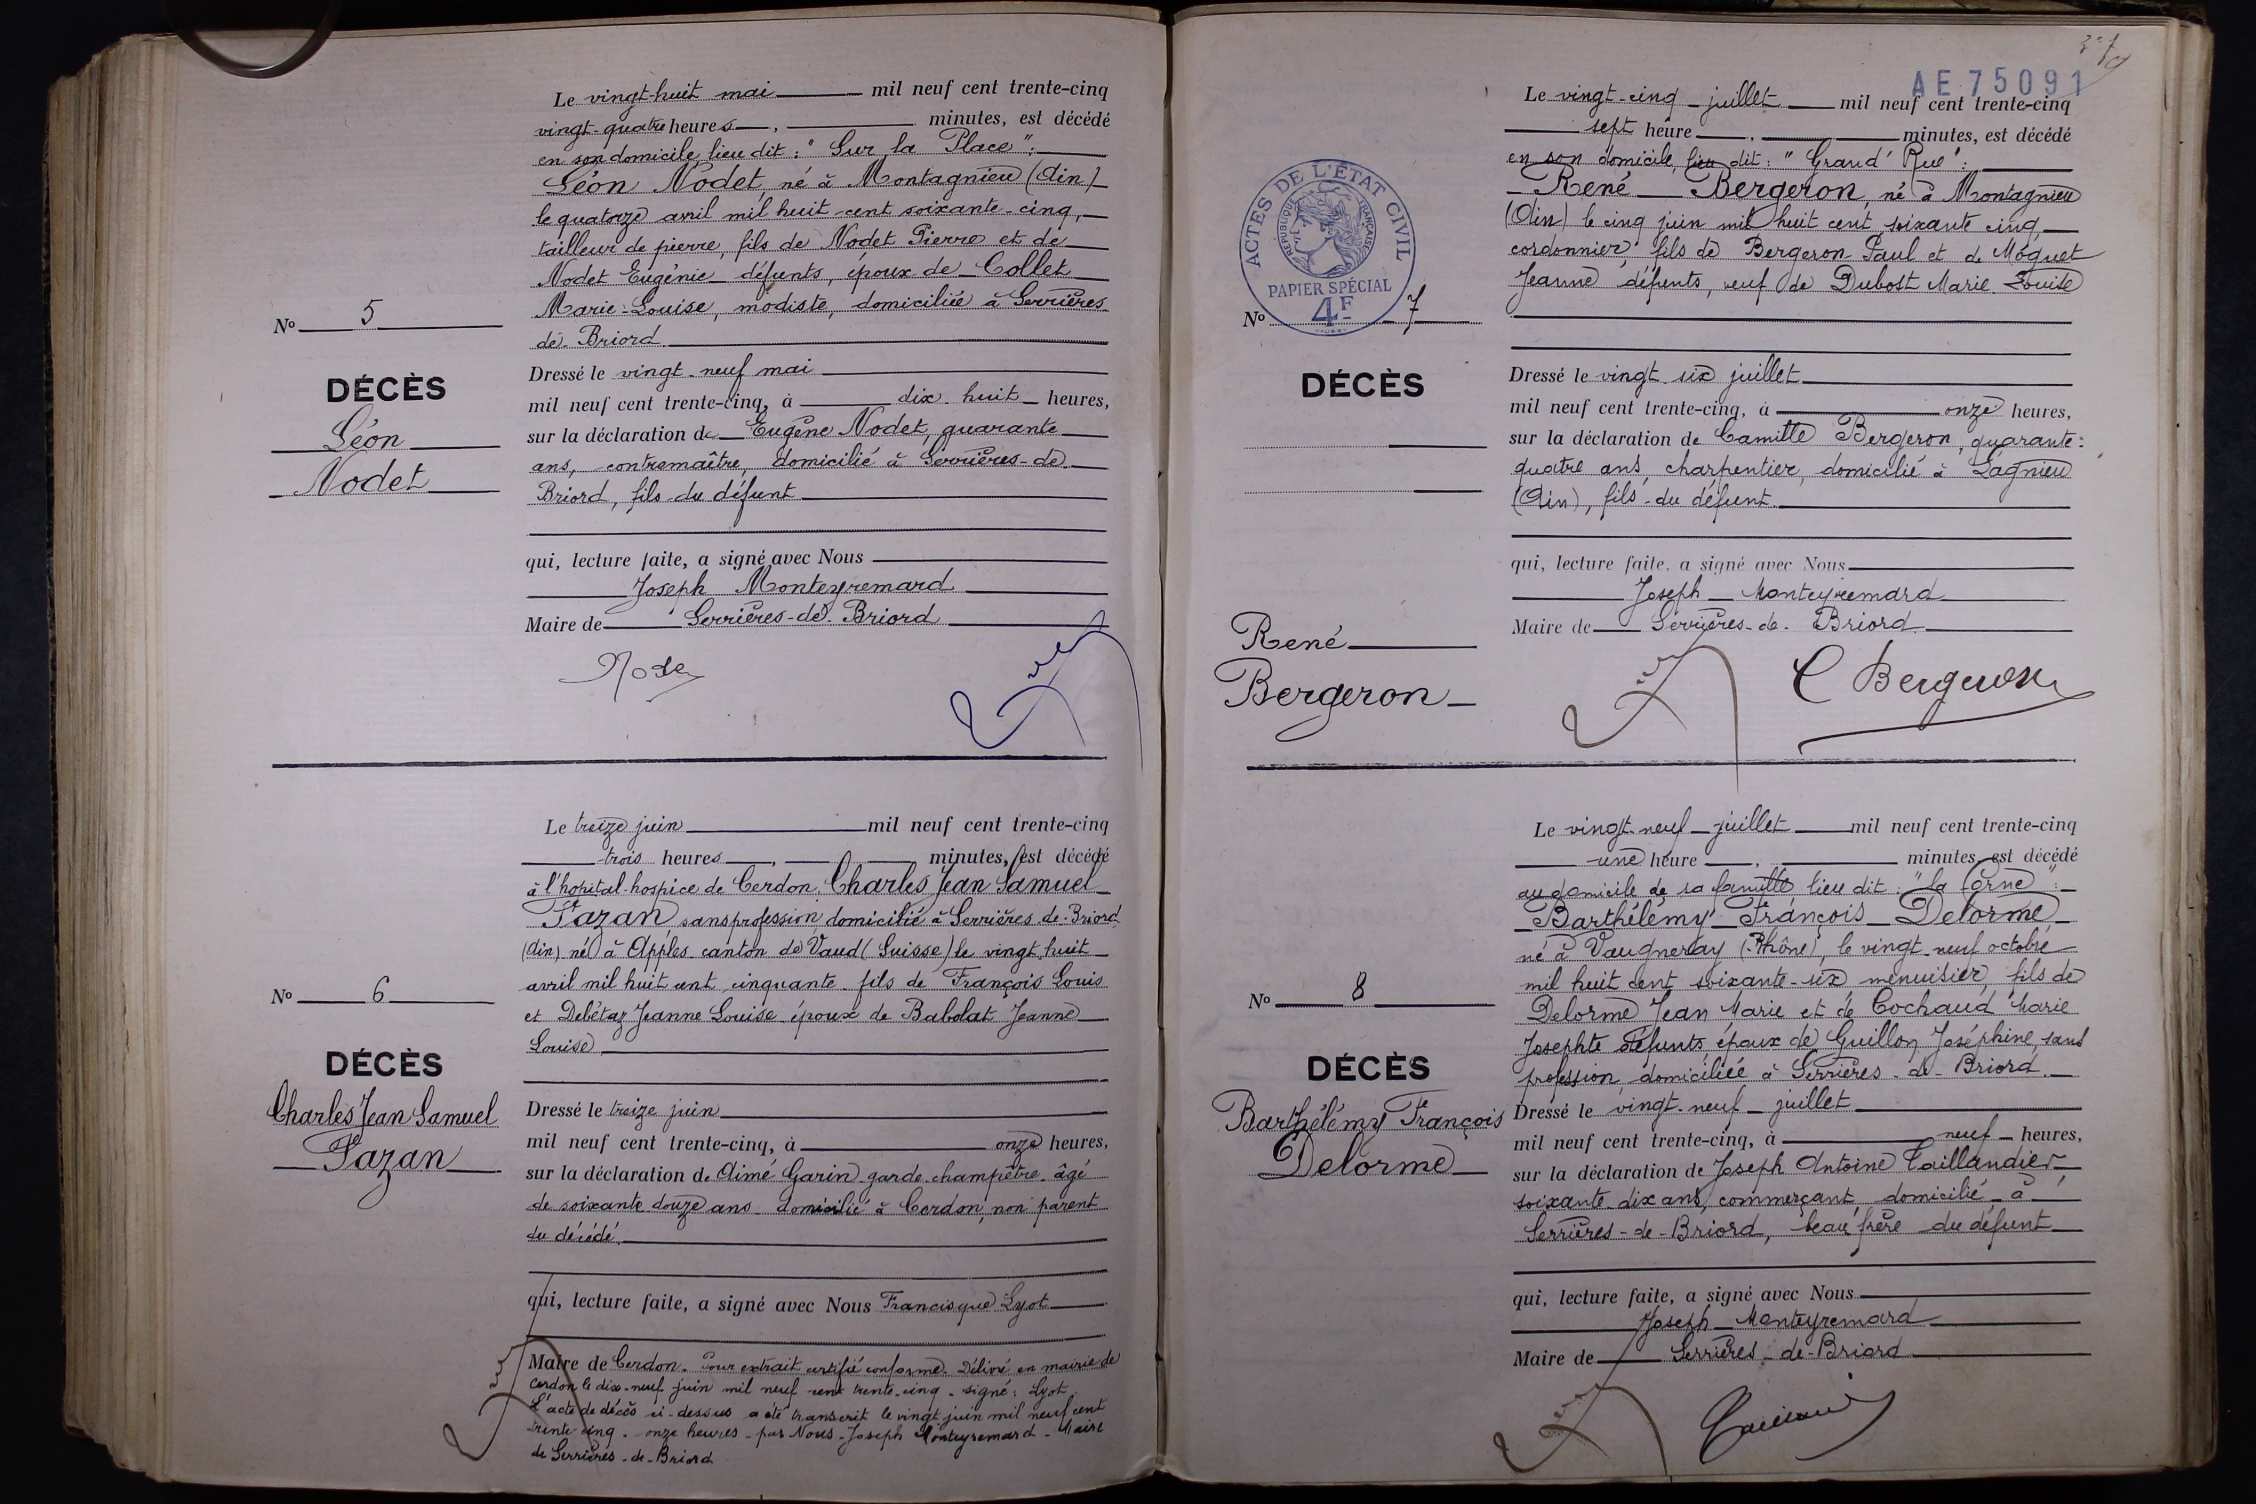 Le vingt-huit mai mil neuf cent trente-cinq
vingt-quatre heures, minutes, est décédé
en son domicile, lieu dit : "Sur la Place" :
Léon Nodet né à Montagnieu (Ain)
le quatorze avril mil huit cent soixante-cinq,
tailleur de pierre, fils de Nodet Pierre et de
Nodet Eugénie défunts, époux de Collet
Marie-Louise, modiste, domiciliée à Serrières
de Briord
Nº 5
DÉCÈS
Léon
Nodet
Dressé le vingt-neuf mai
mil neuf cent trente-cinq, à dix-huit heures,
sur la déclaration de Eugène Nodet, quarante
ans, contremaître, domicilié à Serrières-de
Briord, fils du défunt
qui, lecture faite, a signé avec Nous
Joseph Monteyremard
Maire de Serrières-de-Briord
Le treize juin mil neuf cent trente-cinq
trois heures, minutes, est décédé
à l'hopital-hospice de Cerdon, Charles Jean Samuel
Fazan, sans profession, domicilié à Serrières-de-Briord
(Ain) né à Apples canton de Vaud (Suisse) le vingt huit
avril mil huit cent cinquante fils de François Louis
et Debétaz Jeanne Louise époux de Babolat Jeanne
Louise
Nº 6
DÉCÈS
Charles Jean Samuel
Fazan
Dressé le treize juin
mil neuf cent trente-cinq, à onze heures,
sur la déclaration de Aimé Garin garde-champêtre âgé
de soixante douze ans domicilié à Cerdon, non parent
du décédé.
qui, lecture faite, a signé avec Nous Francisque Lyot
Maire de Cerdon. Pour extrait certifié conforme. Délivré en mairie de
Cerdon le dix-neuf juin mil neuf cent trente-cinq. signé : Lyot
L'acte de décès ci-dessus a été transcrit le vingt juin mil neuf cent
trente cinq. onze heures - par Nous - Joseph Monteyremard - Maire
de Serrières-de-Briord
AE 75091
Le vingt-cinq juillet mil neuf cent trente-cinq
sept heure, minutes, est décédé
en son domicile, lieu dit : "Grand'Rue" :
René Bergeron, né à Montagnieu
(Ain) le cinq juin mil huit cent soixante cinq
cordonnier, fils de Bergeron Paul et de Moguet
Jeanne défunts, veuf de Dubost Marie Louise
ACTES DE L'ÉTAT CIVIL
RÉPUBLIQUE FRANÇAISE
PAPIER SPÉCIAL
4F
Nº 7
DÉCÈS
René
Bergeron
Dressé le vingt six juillet
mil neuf cent trente-cinq, à onze heures,
sur la déclaration de Camille Bergeron, quarante-
quatre ans, charpentier, domicilié à Lagnieu
(Ain), fils du défunt.
qui, lecture faite, a signé avec Nous
Joseph Monteyremard
Maire de Serrières-de-Briord
C Bergeron
Le vingt-neuf juillet mil neuf cent trente-cinq
une heure, minutes, est décédé
au domicile de sa famille lieu dit : "La Corne" :
Barthélémy François Delorme
né à Vaugneray (Rhône), le vingt-neuf octobre
mil huit cent soixante-six menuisier, fils de
Delorme Jean Marie et de Cochaud Marie
Josephte défunts, époux de Guillon Joséphine, sans
profession, domiciliée à Serrières-de-Briord.
Nº 8
DÉCÈS
Barthélémy François
Delorme
Dressé le vingt-neuf juillet
mil neuf cent trente-cinq, à neuf heures,
sur la déclaration de Joseph Antoine Taillandier
soixante dix ans, commerçant, domicilié à
Serrières-de-Briord, beau frère du défunt
qui, lecture faite, a signé avec Nous
Joseph Monteyremard
Maire de Serrières-de-Briord